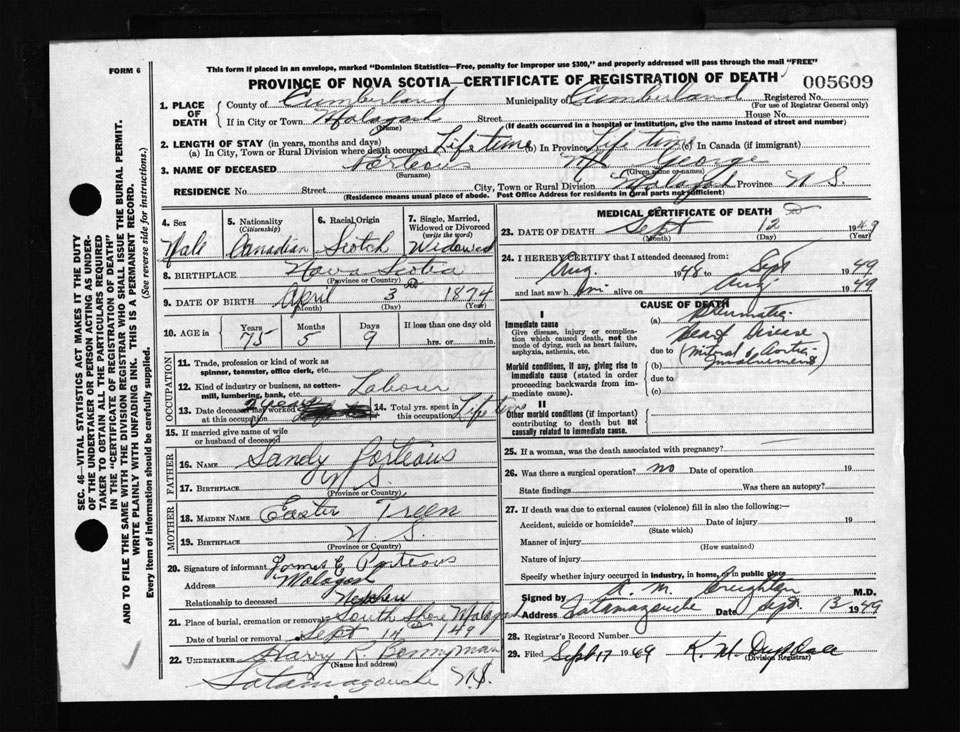 FORM 6
This form if placed in an envelope, marked "Dominion Statistics—Free, penalty for improper use $300," and properly addressed will pass through the mail "FREE"
PROVINCE OF NOVA SCOTIA—CERTIFICATE OF REGISTRATION OF DEATH
005609
1. PLACE OF DEATH
County of Cumberland Municipality of Cumberland Registered No.
(For use of Registrar General only)
If in City or Town Malagash Street House No.
(Name) (If death occurred in a hospital or institution, give the name instead of street and number)
2. LENGTH OF STAY (in years, months and days)
(a) In City, Town or Rural Division where death occurred Life time (b) In Province Life time (c) In Canada (if immigrant)
3. NAME OF DECEASED Porteous George
(Surname) (Given name or names)
RESIDENCE No. Street City, Town or Rural Division Malagash Province N S.
(Residence means usual place of abode. Post Office Address for residents in rural parts not sufficient)
4. Sex Male
5. Nationality (Citizenship) Canadian
6. Racial Origin Scotch
7. Single, Married, Widowed or Divorced (write the word) Widowed
8. BIRTHPLACE Nova Scotia
(Province or Country)
9. DATE OF BIRTH April 3rd 1874
(Month) (Day) (Year)
10. AGE in Years 75 Months 5 Days 9 If less than one day old hrs. or min.
OCCUPATION
11. Trade, profession or kind of work as spinner, teamster, office clerk, etc.
12. Kind of industry or business, as cotton-mill, lumbering, bank, etc. Labourer
13. Date deceased last worked at this occupation
14. Total yrs. spent in this occupation Life time
15. If married give name of wife or husband of deceased
FATHER
16. NAME Sandy Porteous
17. BIRTHPLACE N S.
(Province or Country)
MOTHER
18. MAIDEN NAME Easter Treen
19. BIRTHPLACE N S.
(Province or Country)
20. Signature of informant James E Porteous
Address Malagash
Relationship to deceased Nephew
21. Place of burial, cremation or removal South Shore Malagash
Date of burial or removal Sept 14th 1949
22. UNDERTAKER Harry R. Bonnyman
(Name and address)
Tatamagouche N.S.
MEDICAL CERTIFICATE OF DEATH
23. DATE OF DEATH Sept 12 1949
(Month) (Day) (Year)
24. I HEREBY CERTIFY that I attended deceased from:
Aug. 1948 to Sept 1949
and last saw him alive on Aug 1949
CAUSE OF DEATH
I
Immediate cause
Give disease, injury or complication which caused death, not the mode of dying, such as heart failure, asphyxia, asthenia, etc.
(a) Rheumatic
Heart Disease
due to (Mitral & Aortic
(b) Involvement)
Morbid conditions, if any, giving rise to immediate cause (stated in order proceeding backwards from immediate cause).
due to
(c)
II
Other morbid conditions (if important) contributing to death but not causally related to immediate cause.
25. If a woman, was the death associated with pregnancy?
26. Was there a surgical operation? no Date of operation 19
State findings Was there an autopsy?
27. If death was due to external causes (violence) fill in also the following:—
Accident, suicide or homicide? Date of injury 19
(State which)
Manner of injury
(How sustained)
Nature of injury
Specify whether injury occurred in industry, in home, or in public place
Signed by R. M. Creighton M.D.
Address Tatamagouche Date Sept. 13 1949
28. Registrar's Record Number
29. Filed Sept 17 1949
(Division Registrar)
SEC. 46—VITAL STATISTICS ACT MAKES IT THE DUTY
OF THE UNDERTAKER OR PERSON ACTING AS UNDER-
TAKER TO OBTAIN ALL THE PARTICULARS REQUIRED
IN THE "CERTIFICATE OF REGISTRATION OF DEATH"
AND TO FILE THE SAME WITH THE DIVISION REGISTRAR WHO SHALL ISSUE THE BURIAL PERMIT.
WRITE PLAINLY WITH UNFADING INK. THIS IS A PERMANENT RECORD.
Every item of information should be carefully supplied. (See reverse side for instructions.)